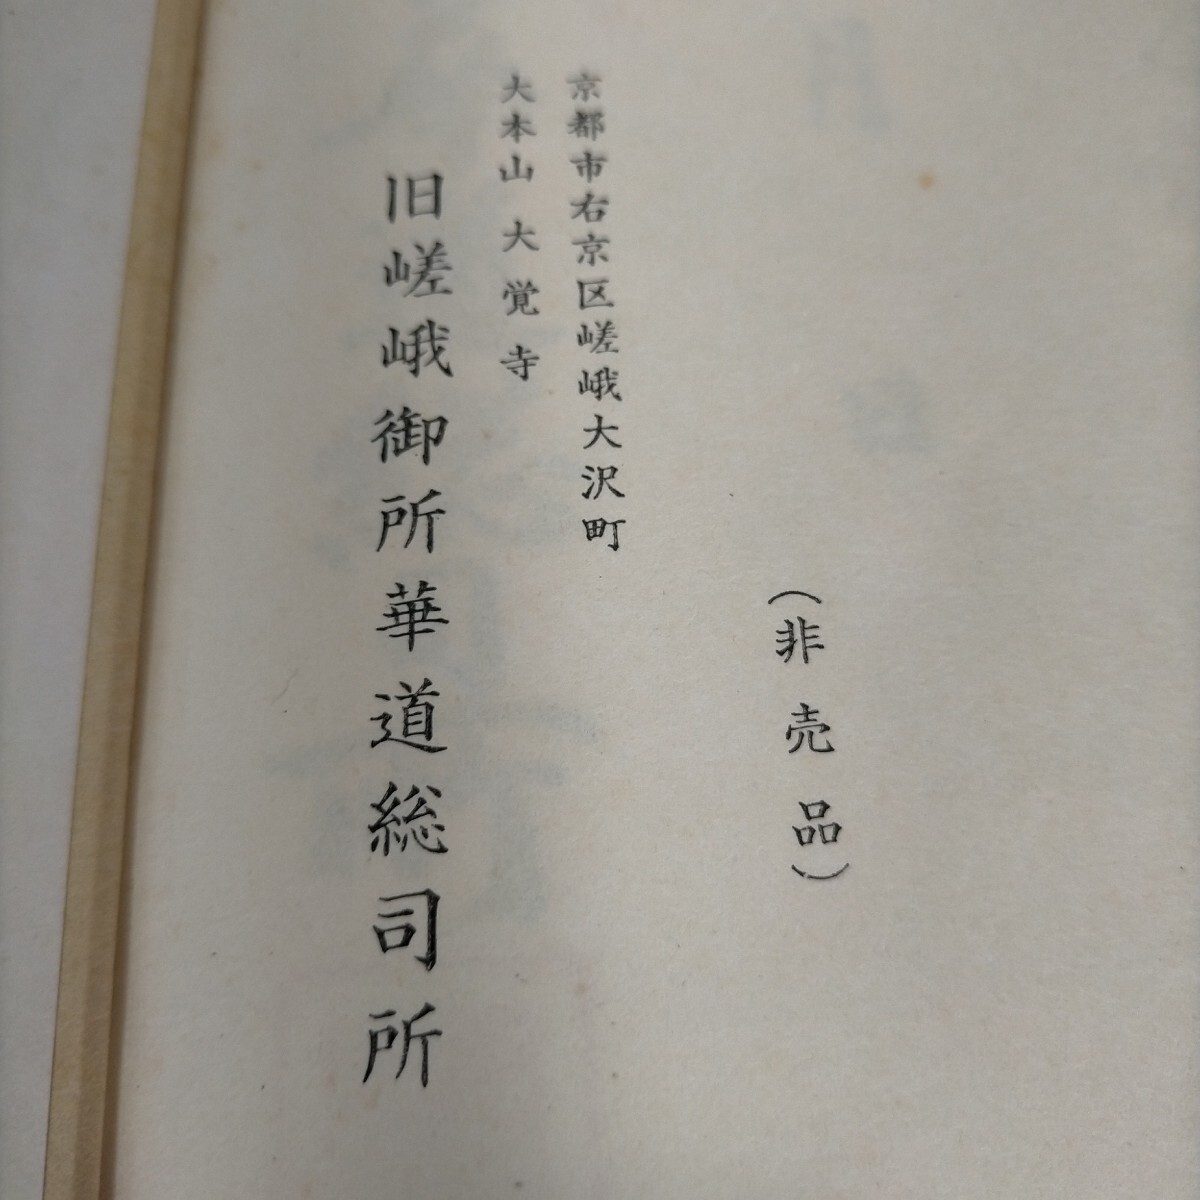 (非売品)
京都市右京区嵯峨大沢町
大本山大覚寺
旧嵯峨御所華道総司所